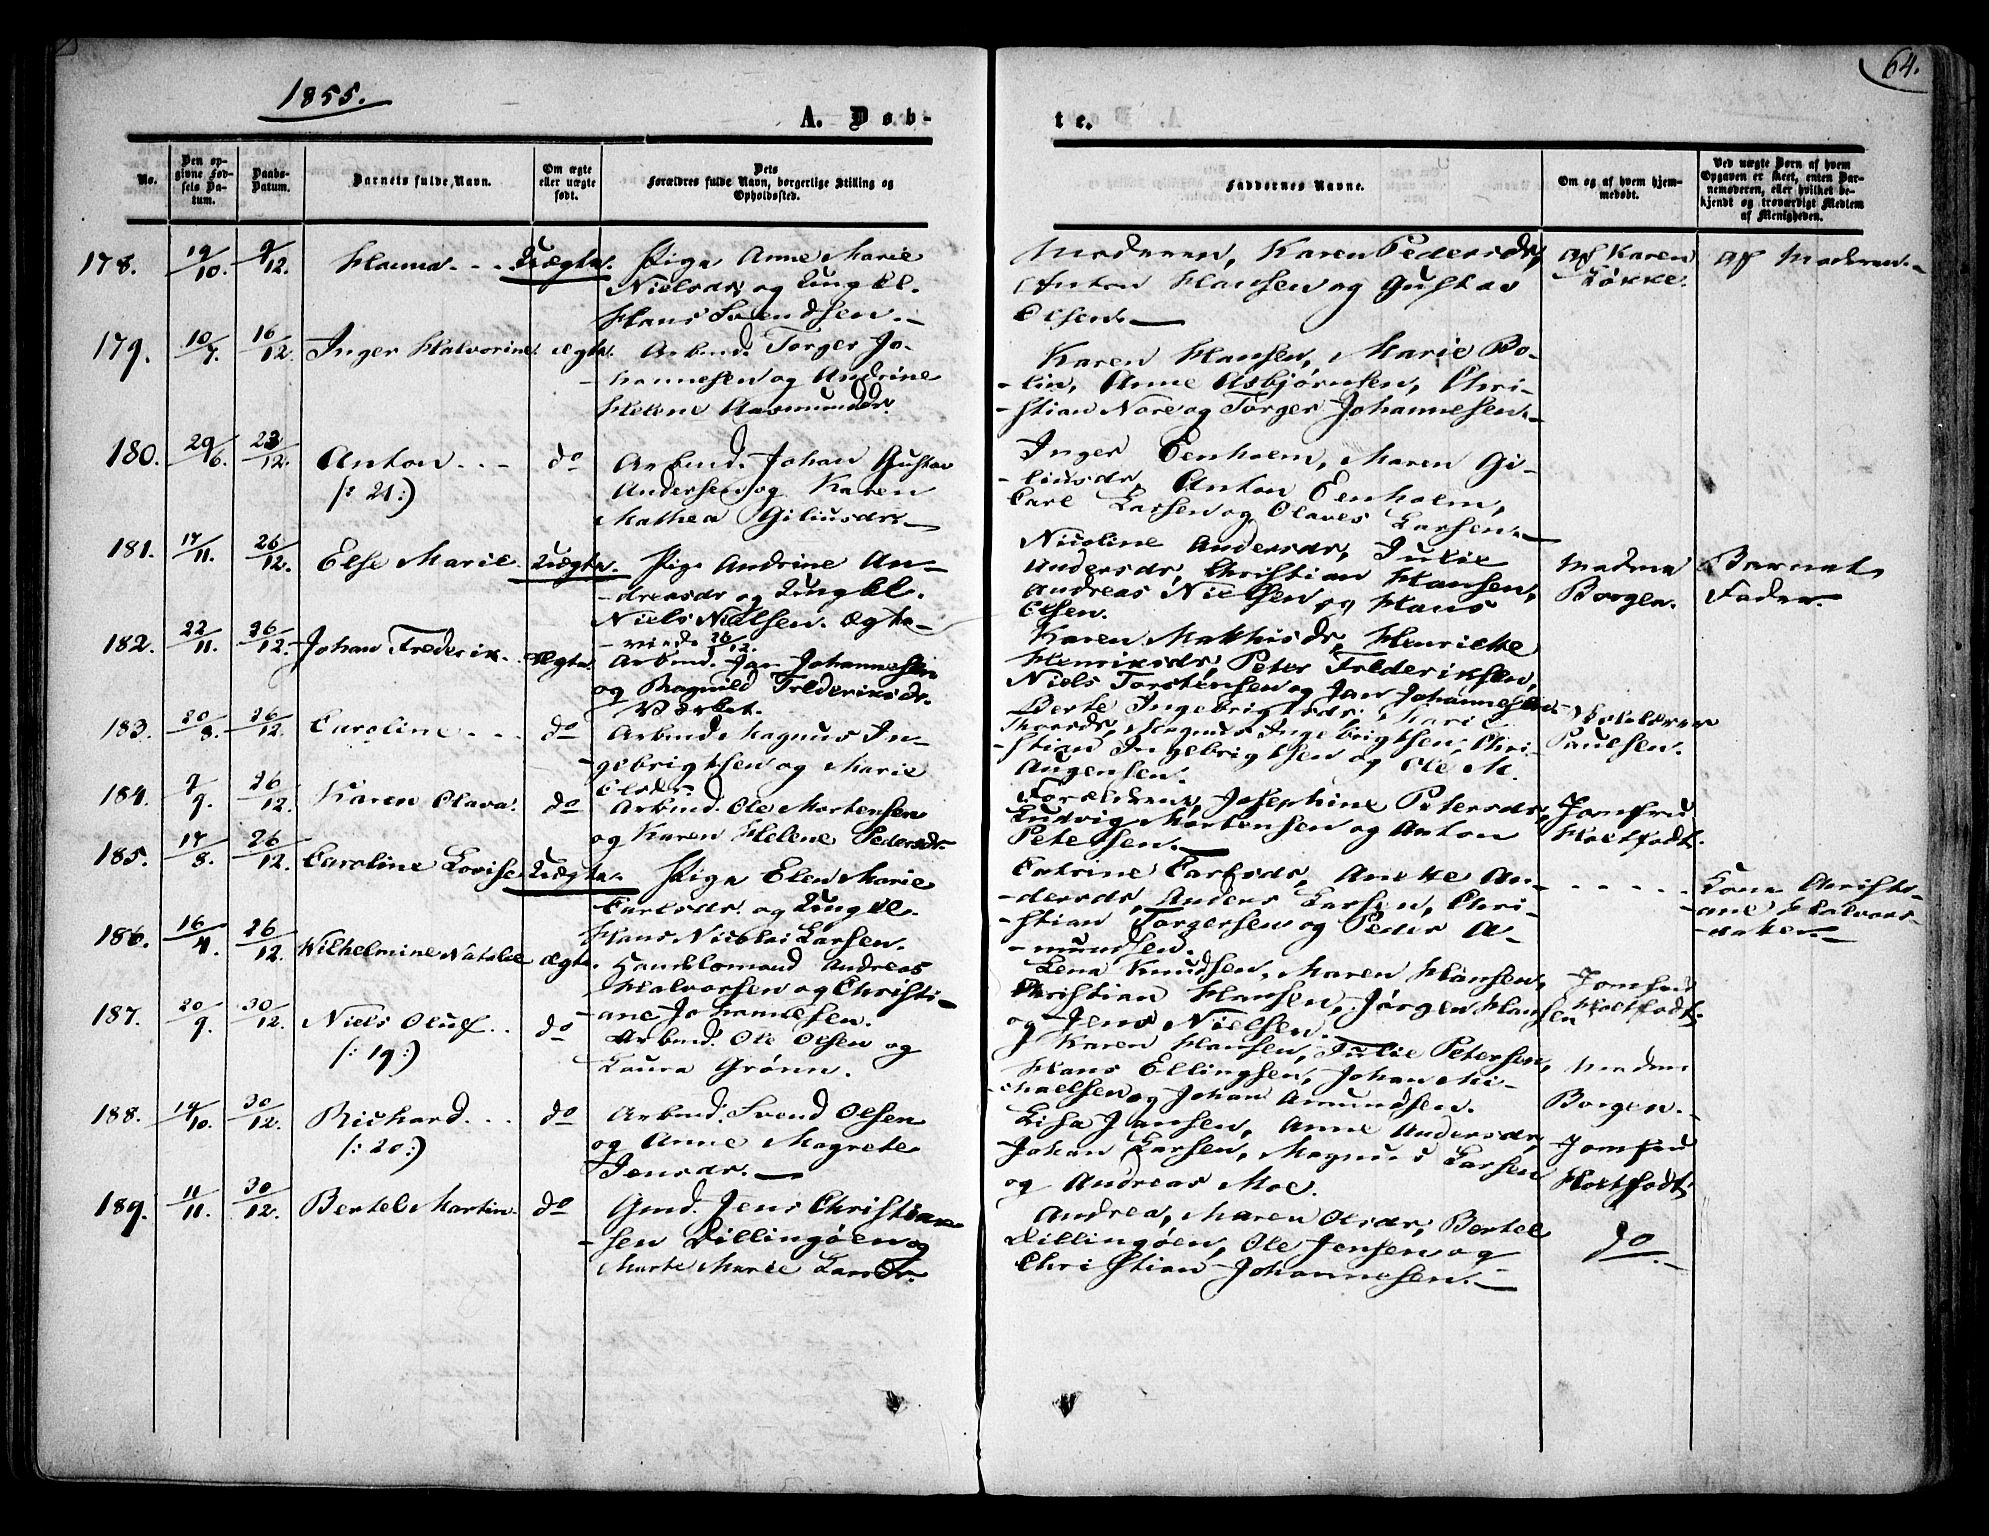 64.
1855.
A. Døb-
te.
No.
Den op-
givne Fød-
sels Da-
tum.
Daabs-
Datum.
Barnets fulde Navn.
Om ægte
eller uægte
født.
Dets
Forældres fulde Navn, borgerlige Stilling og
Opholdssted.
Faddernes Navne.
Om og af hvem hjem-
medøbt.
Ved uægte Børn af hvem
Opgaven er skeet, enten Bar-
nemoderen, eller hvilket be-
kjendt og troværdigt Medlem
af Menigheden.
178. 19/10. 9/12. Hanna. Uægte. Pige Anne Marie
Nielsdr og Ungkl.
Hans Svendsen.
Moderen, Karen Pedersdr,
Anton Hansen og Gustav
Olsen.
Af Karen
Løkke.
Af Moderen.
179. 10/7. 16/12. Inger Halvorine. ægte. Arbmd. Torger Jo-
hannesen og Andrine
Helene Aasmundsdr.
Karen Hansen, Marie Bo-
lin, Anne Asbjørnsen, Chri-
stian Nore og Torger Johannesen.
180. 29/6. 23/12. Anton. do
(: 21:)
Arbmd. Johan Gustav
Andersen og Karen
Mathea Giliusdr.
Inger Eenholm, Maren Gi-
liusdr, Anton Eenholm,
Carl Larsen og Olaves Larsen.
181. 17/11. 26/12. Else Marie. Uægte. Pige Andrine An-
dreasdr og Ungkl.
Niels Nielsen. Ægte-
viede 26/12.
Nicoline Andersdr, Julie
Andersdr, Christian Hansen,
Andreas Nielsen og Hans
Olsen.
Madme
Borgen.
Barnets
Fader.
182. 22/11. 26/12. Johan Frederik. Ægte. Arbmd. Jan Johannesen
og Ragnild Frederiksdr.
Værket.
Karen Mathisdr, Henriette
Henriksdr, Peter Frederiksen,
Niels Torstensen og Jan Johannesen.
183. 20/8. 26/12. Caroline. do Arbmd. Magnus In-
gebrigtsen og Marie
Olsdr.
Berte Ingebrigtsdr, Marie
Thorsdr, Magnus Ingebrigtsen, Chri-
stian Ingebrigtsen og Ole M.
Augensen.
Skolelærer
Paulsen.
184. 7/9. 26/12. Karen Olava. do Arbmd. Ole Mortensen
og Karen Helene Pedersdr.
Forældrene, Josephine Petersdr,
Ludvig Mortensen og Anton
Petersen.
Jomfru
Holtfodt.
185. 17/8. 26/12. Caroline Lovise Uægte. Pige Elen Marie
Carlsdr. og Ungkl.
Hans Nicolai Larsen.
Catrine Carlsdr, Anette An-
dersdr, Anders Larsen, Chri-
stian Torgersen og Peder A-
mundsen.
Kone Christi-
ane Halvors-
baken.
186. 16/4. 26/12. Wilhelmine Natalie ægte. Handelsmand Andreas
Halvorsen og Christi-
ane Johannesen.
Lena Knudsen, Maren Hansen,
Christian Hansen, Jørgen Hansen
og Jens Nielsen.
Jomfru
Holtfodt.
187. 20/9. 30/12. Niels Oluf. do
(: 19:)
Arbmd. Ole Olsen og
Laura Grønn.
Karen Hansen, Julie Petersen,
Hans Ellingsen, Johan Mi-
chaelsen og Johan Amundsen.
Madme
Borgen.
188. 19/10. 30/12. Richard. do
(: 20:)
Arbmd. Svend Olsen
og Anne Magrete
Jensdr.
Lisa Jansen, Anne Andersdr,
Johan Larsen, Magnus Larsen
og Andreas Moe.
Jomfru
Holtfodt
189. 11/11. 30/12. Bertel Martin. do Gmd. Jens Christian-
sen Dillingøen og
Marte Marie Larsdr.
Andrea, Maren Olsdr, Bertel
Dillingøen, Ole Jensen og
Christian Johannesen.
do